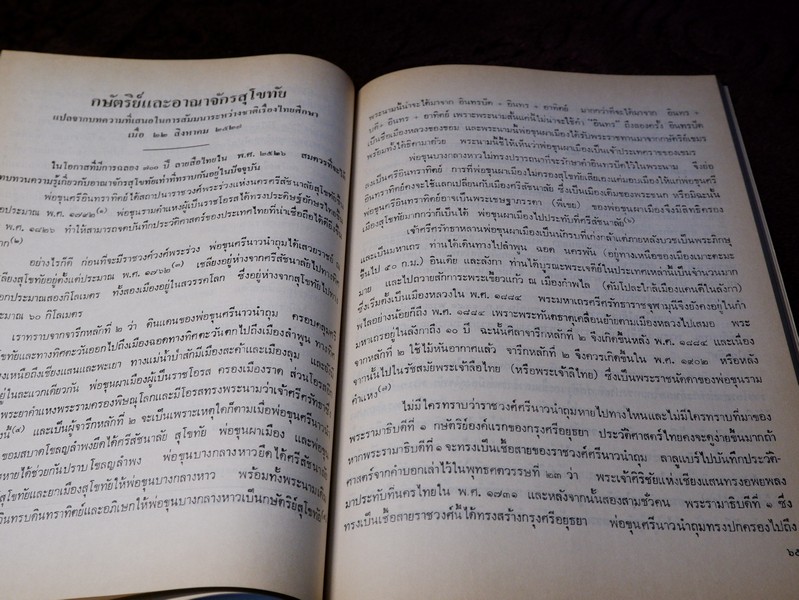 กษัตริย์และอาณาจักรสุโขทัย
แปลจากบทความที่เสนอในการสัมมนาระหว่างชาติเรื่องไทยศึกษา
เมื่อ ๒๒ สิงหาคม ๒๕๒๗
ในโอกาสที่มีการฉลอง ๗๐๐ ปี ลายสือไทยใน พ.ศ. ๒๕๒๖ สมควรที่จะได้
ทบทวนความรู้เกี่ยวกับอาณาจักรสุโขทัยเท่าที่ทราบกันอยู่ในปัจจุบัน
พ่อขุนศรีอินทราทิตย์ได้สถาปนาราชวงศ์พระร่วงแห่งนครศรีสัชนาลัยสุโขทัยขึ้น
ประมาณ พ.ศ. ๑๗๙๒(๑) พ่อขุนรามคำแหงผู้เป็นราชโอรสได้ทรงประดิษฐ์อักษรไทยขึ้น
พ.ศ. ๑๘๒๖ ทำให้สามารถจดบันทึกประวัติศาสตร์ของประเทศไทยที่น่าเชื่อถือได้ดียิ่งขึ้น
(๒)
อย่างไรก็ดี ก่อนที่จะมีราชวงศ์พระร่วง พ่อขุนศรีนาวนำถุมได้เสวยราชย์
เชลียงสุโขทัยอยู่ตั้งแต่ประมาณ พ.ศ. ๑๗๖๒(๓) เชลียงอยู่ห่างจากศรีสัชนาลัยไปทางทิศ
ออกประมาณสองกิโลเมตร ทั้งสองเมืองอยู่ในสวรรคโลก ซึ่งอยู่ห่างจากสุโขทัยไปทาง
ประมาณ ๖๐ กิโลเมตร
เราทราบจากจารึกหลักที่ ๒ ว่า ดินแดนของพ่อขุนศรีนาวนำถุม ครอบคลุมศรี
สุโขทัยและทางทิศตะวันออกไปถึงเมืองฉอดทางทิศตะวันตกไปถึงเมืองลำพูน ทางทิศ
เหนือไปถึงเชียงแสนและพะเยา ทางแม่น้ำป่าสักมีเมืองสะค้าและเมืองลุม
อยู่ในละแวกเดียวกัน พ่อขุนผาเมืองผู้เป็นราชโอรส ครองเมืองราด ส่วนโอรสอีก
พระยาคำแหงพระรามครองพิษณุโลกและมีโอรสทรงพระนามว่าเจ้าศรีศรัทธา
นี้(๔) และเป็นผู้จารึกหลักที่ ๒ จะเป็นเพราะเหตุใดก็ตามเมื่อพ่อขุนศรีนาวนำ
ขอมสบาดโขลญลำพงยึดได้ศรีสัชนาลัย สุโขทัย พ่อขุนผาเมือง และพ่อขุน
หายได้ช่วยกันปราบโขลญลำพง พ่อขุนบางกลางหาวยึดได้ศรีสัชนาลัย
สุโขทัยและยกเมืองสุโขทัยให้พ่อขุนบางกลางหาว พร้อมทั้งพระนามเดิม
อินทรบดินทราทิตย์ และอภิเษกให้พ่อขุนบางกลางหาวเป็นกษัตริย์สุโขทัย
พระนามนี้น่าจะได้มาจาก อินทรบัด + อินทร + อาทิตย์ มากกว่าที่จะได้มาจาก อินทร +
บดี + อินทร + อาทิตย์ เพราะพระนามสั้นแค่นี้ไม่น่าจะใช้คำ "อินทร" ถึงสองครั้ง อินทรบัด
เป็นชื่อเมืองหลวงของขอม และพระนามนี้พ่อขุนผาเมืองได้รับพระราชทานมาจากกษัตริย์เขมร
พร้อมทั้งได้ธิดามาด้วย พระนามนี้ชี้ให้เห็นว่าพ่อขุนผาเมืองเป็นเจ้าประเทศราชของเขมร
พ่อขุนบางกลางหาวไม่ทรงปรารถนาที่จะรักษาคำอินทรบัดไว้ในพระนาม จึงย่อ
ลงเป็นศรีอินทราทิตย์ การที่พ่อขุนผาเมืองไม่ครองสุโขทัยเสียเองแต่มอบเมืองให้แก่พ่อขุนศรี
อินทราทิตย์คงจะใช้แลกเปลี่ยนกับเมืองศรีสัชนาลัย ซึ่งเป็นเมืองเดิมของพระชนก หรือมิฉะนั้น
พ่อขุนศรีอินทราทิตย์อาจเป็นพระเชษฐาภรรดา (พี่เขย) ของพ่อขุนผาเมืองจึงมีสิทธิครอง
เมืองสุโขทัยมากกว่าก็เป็นได้ พ่อขุนผาเมืองไปประทับที่ศรีสัชนาลัย(๖)
เจ้าศรีศรัทธาหลานพ่อขุนผาเมืองเป็นนักรบที่เก่งกล้าแต่ภายหลังบวชเป็นพระภิกษุ
และเป็นมหาเถร ท่านได้เดินทางไปลำพูน ฉอด นครพัน (อยู่ทางเหนือของเมาะตะมะ
ขึ้นไป ๔๐ ก.ม.) อินเดีย และลังกา ท่านได้บูรณะพระเจดีย์ในประเทศเหล่านี้เป็นจำนวนมาก
มาย และไปถวายสักการะพระเขี้ยวแก้ว ณ เมืองกำพไล (คัมโปละใกล้เมืองแคนดีในลังกา)
ซึ่งเริ่มตั้งเป็นเมืองหลวงใน พ.ศ. ๑๘๘๔ พระมหาเถรศรีศรัทธาราชจุฬามุนีจึงยังคงอยู่ในกำ
พไลอย่างน้อยก็ถึง พ.ศ. ๑๘๘๔ เพราะพระทันตธาตุเคลื่อนย้ายตามเมืองหลวงไปเสมอ พระ
มหาเถรอยู่ในลังกาถึง ๑๐ ปี ฉะนั้นศิลาจารึกหลักที่ ๒ จึงเกิดขึ้นหลัง พ.ศ. ๑๘๘๔ และเนื่อง
จากหลักที่ ๒ ใช้ไม้หันอากาศแล้ว จารึกหลักที่ ๒ จึงควรเกิดขึ้นใน พ.ศ. ๑๙๐๒ หรือหลัง
จากนั้นไปในรัชสมัยพระเจ้าลือไทย (หรือพระเจ้าลิไทย) ซึ่งเป็นพระราชนัดดาของพ่อขุนราม
คำแหง(๗)
ไม่มีใครทราบว่าราชวงศ์ศรีนาวนำถุมหายไปทางไหนและไม่มีใครทราบที่มาของ
พระรามาธิบดีที่ ๑ กษัตริย์องค์แรกของกรุงศรีอยุธยา ประวัติศาสตร์ไทยคงจะดูง่ายขึ้นมากถ้า
หากพระรามาธิบดีที่ ๑ จะทรงเป็นเชื้อสายของราชวงศ์ศรีนาวนำถุม ลาลูแบร์ไปบันทึกประวัติ-
ศาสตร์จากคำบอกเล่าไว้ในพุทธศตวรรษที่ ๒๓ ว่า พระเจ้าศิริชัยแห่งเชียงแสนทรงอพยพลง
มาประทับที่นครไทยใน พ.ศ. ๑๗๓๑ และหลังจากนั้นสองสามชั่วคน พระรามาธิบดีที่ ๑ ซึ่ง
ทรงเป็นเชื้อสายราชวงศ์นี้ได้ทรงสร้างกรุงศรีอยุธยา พ่อขุนศรีนาวนำถุมทรงปกครองไปถึง